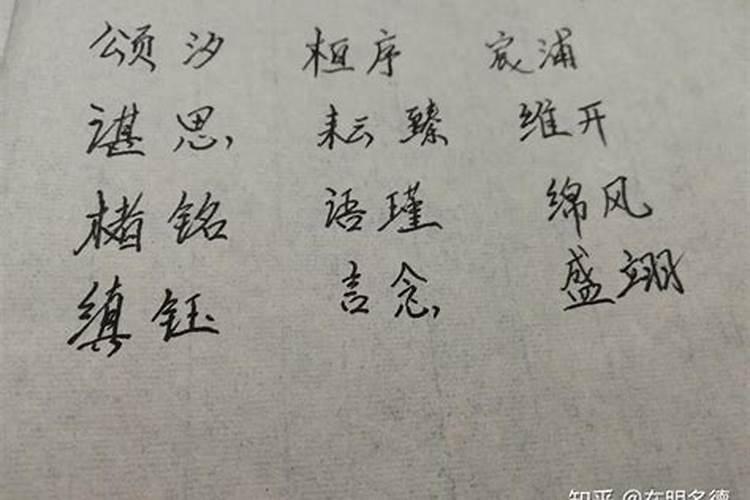 颂汐 桓序 宸浦
谌思 耘臻 维开
楮铭 语瑾 绵风
缜钰 言念 盛翊
知乎 @在明名德